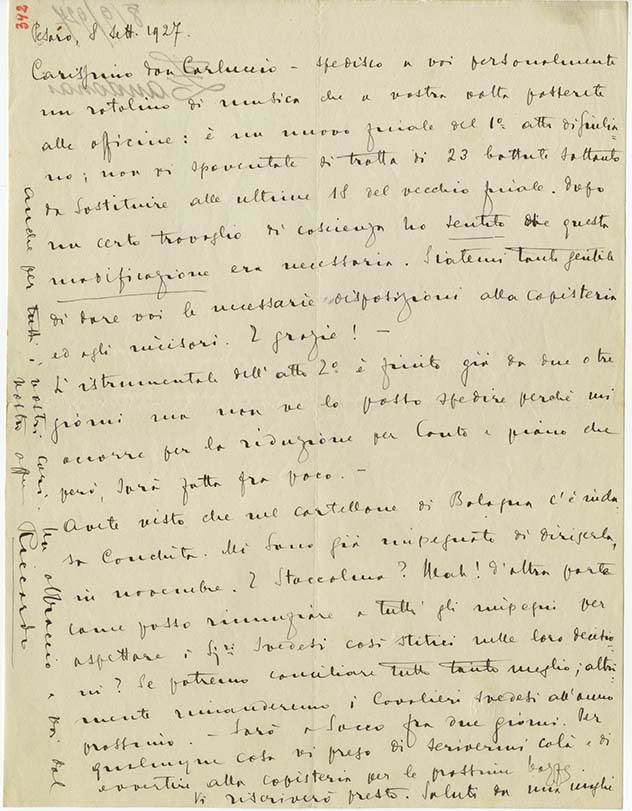 342
Pesaro, 8 sett. 1927.
Carissimo don Carluccio – spedisco a voi personalmente
un rotolino di musica che a vostra volta passerete
alle officine: è un nuovo finale del 1º atto di Giulia-
no; non vi spaventate si tratta di 23 battute soltanto
da sostituire alle ultime 18 del vecchio finale. Dopo
un certo travaglio di coscienza ho sentito che questa
modificazione era necessaria. Siatemi tanto gentile
di dare voi le necessarie disposizioni alla copisteria
ed agli incisori. E grazie! –
L'istrumentale dell'atto 2º è finito già da due o tre
giorni ma non ve lo posso spedire perchè mi
occorre per la riduzione per Canto e piano che
però, sarà fatta fra poco. –
Avete visto che nel cartellone di Bologna c'è inclu-
sa Conchita. Mi sono già impegnato di dirigerla,
in novembre. E Stoccolma? Mah! D'altra parte
come posso rinunziare a tutti gli impegni per
aspettare i Sigri. Svedesi così stitici nelle loro decisio-
ni? Se potremo conciliare tutto tanto meglio; altri-
mente rimanderemo i Cavalieri svedesi all'anno
prossimo. – Sarò a Sacco fra due giorni. Per
qualunque cosa vi prego di scrivermi colà e di
avvertire alla copisteria per le prossime bozze.
Vi riscriverò presto. Saluti da mia moglie
anche per tutti i vostri cari. Un abbraccio a voi dal
vostro aff.
Riccardo